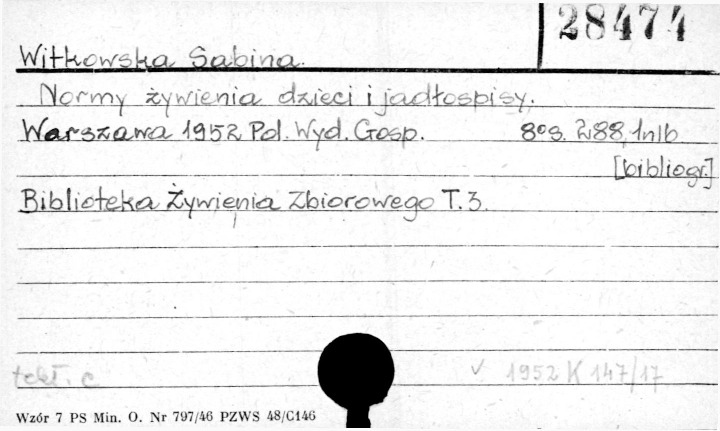 28474
Witkowska Sabina.
Normy żywienia dzieci i jadłospisy.
Warszawa 1952 Pol. Wyd. Gosp. 8° s. 288, 1nlb
[bibliogr.]
Biblioteka Żywienia Zbiorowego T. 3.
c
1952 K 147/17
Wzór 7 PS Min. O. Nr 797/46 PZWS 48/C146